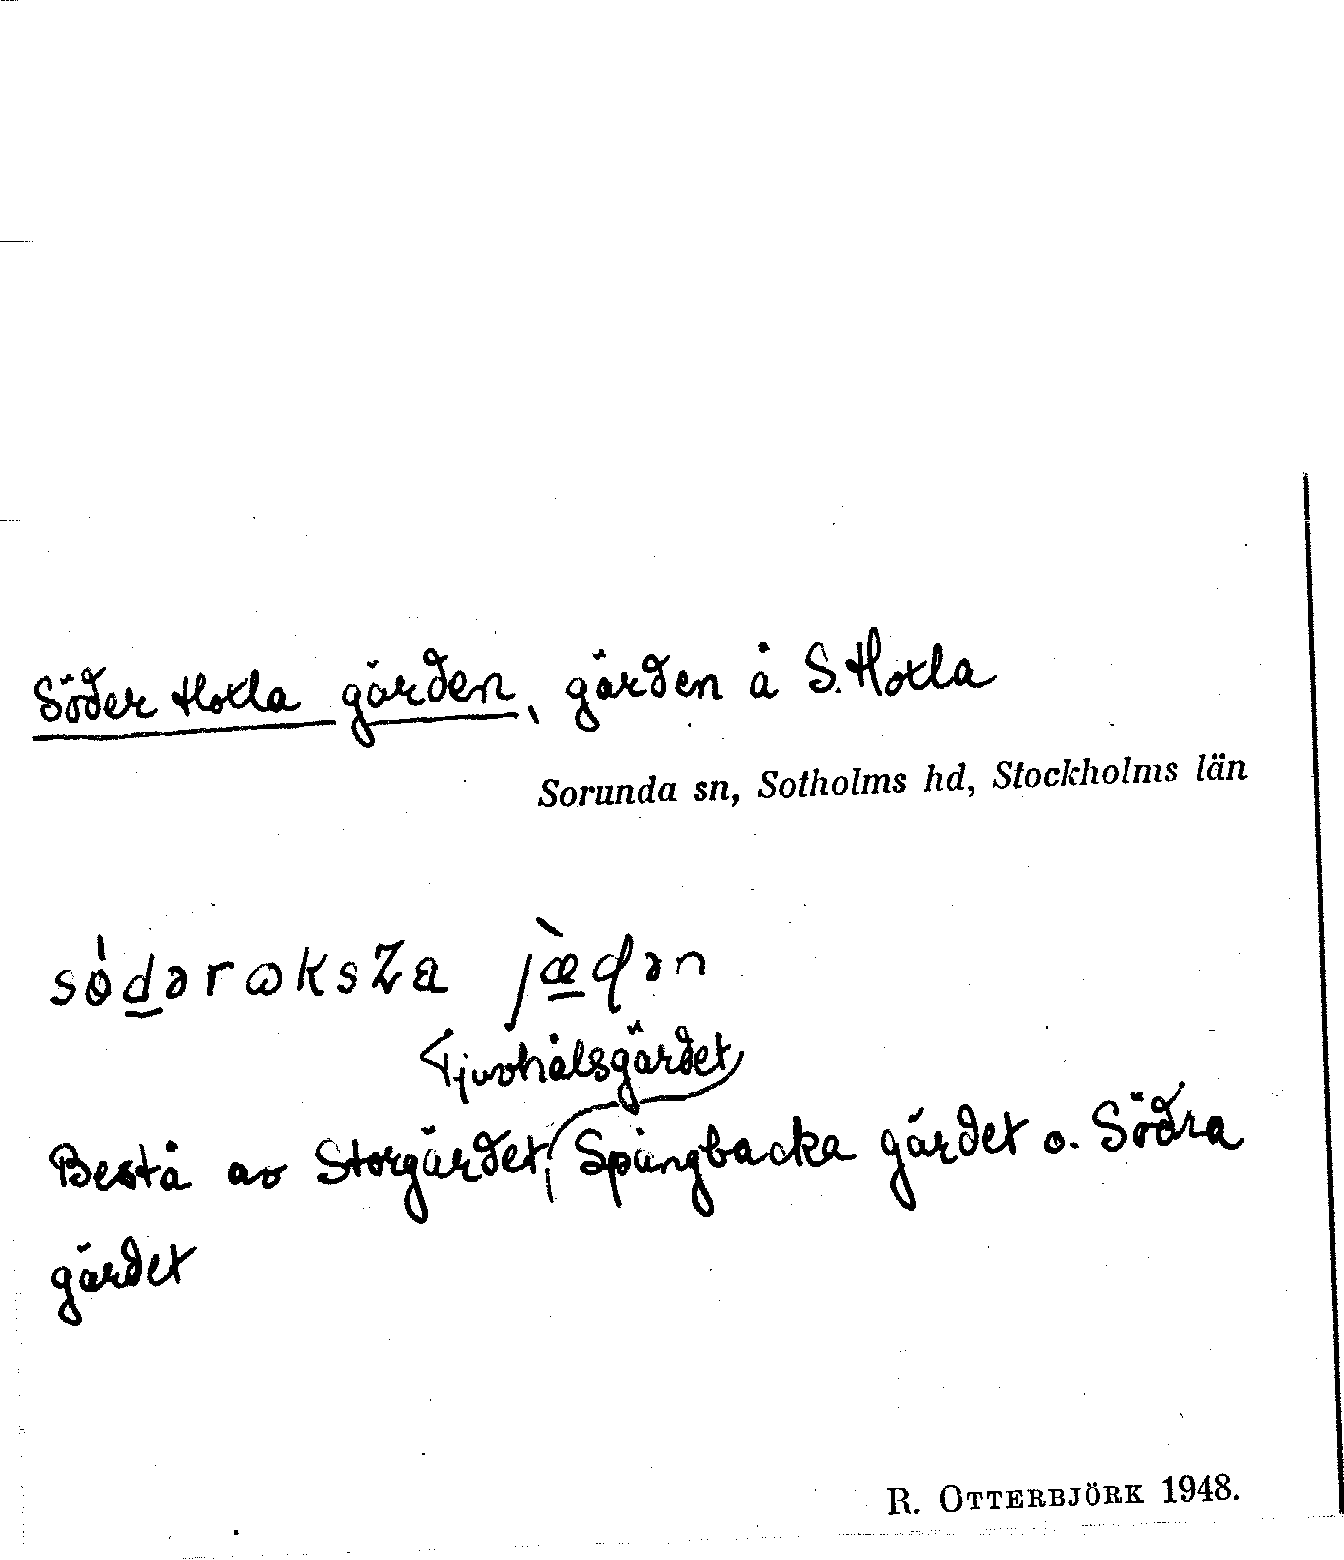 Söder Hoxla gärden, gärden å S. Hoxla
Sorunda sn, Sotholms hd, Stockholms län
Tjuvhålsgärdet
Bestå av Storgärdet, Spångbacka gärdet o. Södra
gärdet
R. OTTERBJÖRK 1948.